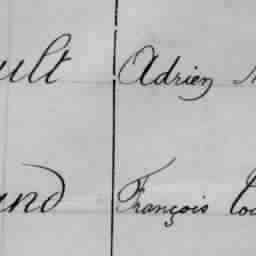 ult Adrien
and François